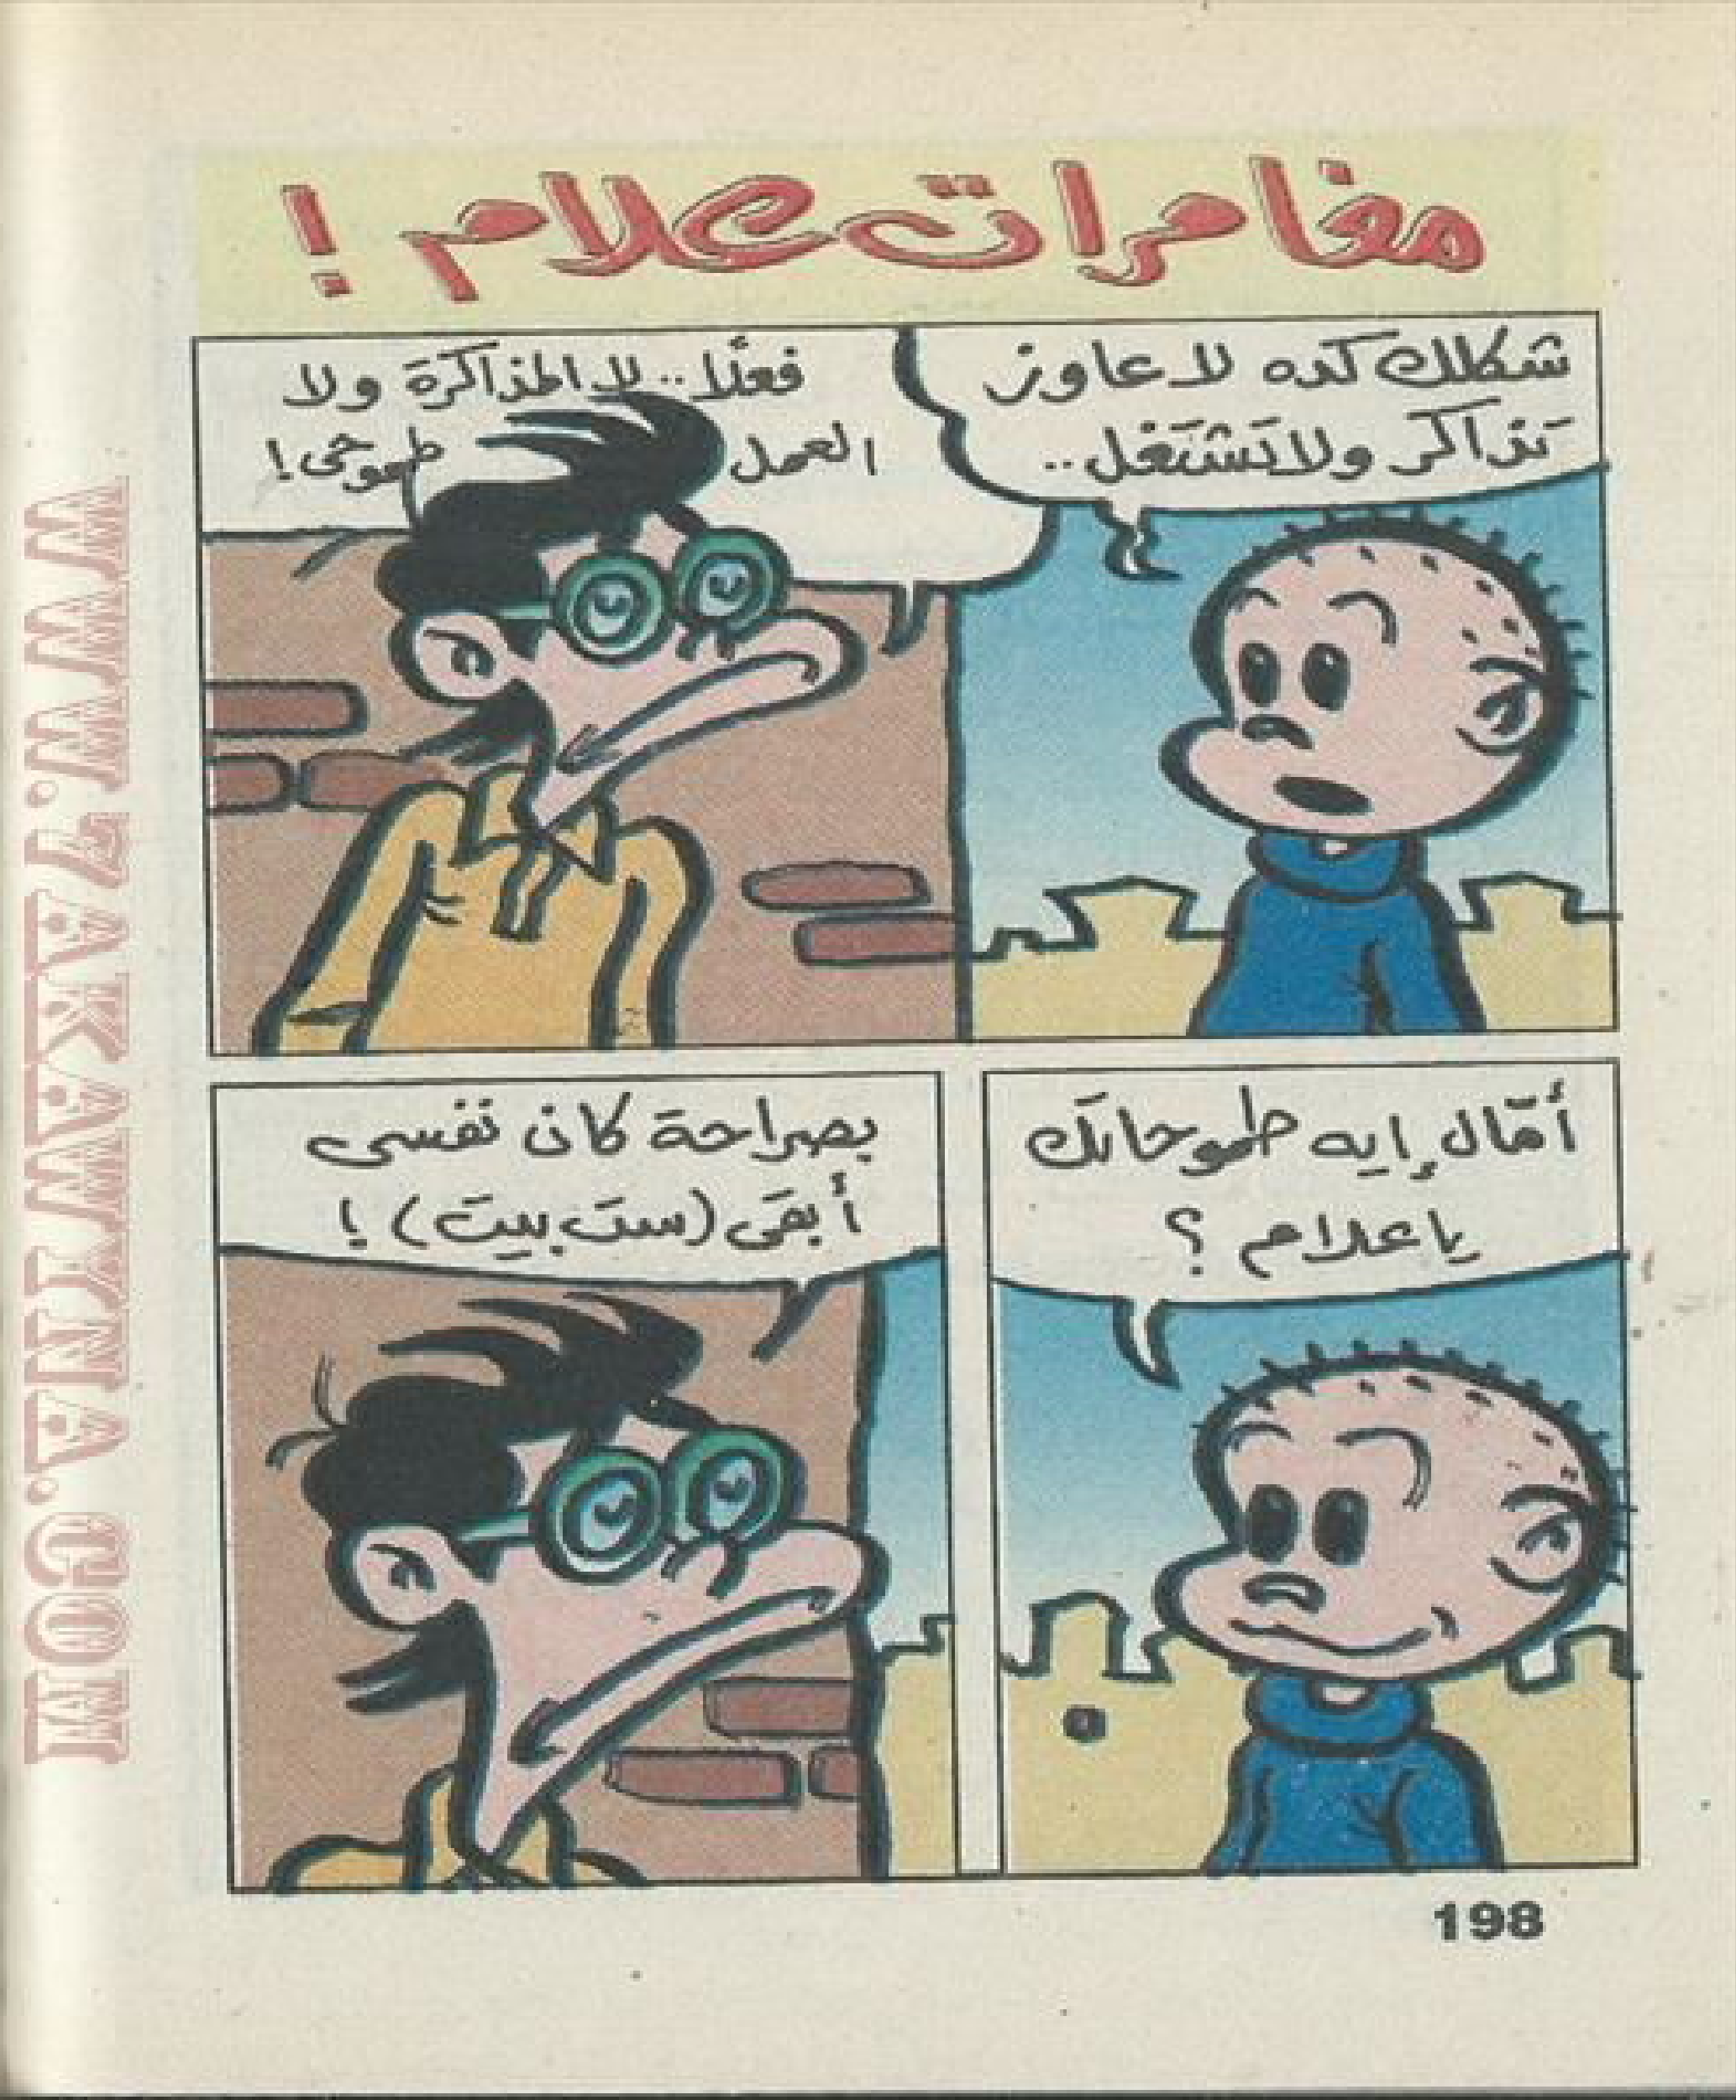 مغامرات علام !
شكلك كده لا عاوز
تذاكر ولا تَشتَغل..
فعلًا.. لا المذاكرة ولا
العمل طموحى!
أمّال إيه طموحاتك
يا علام ؟
بصراحة كان نفسى
أبقى (ست بيت) !
198
WWW.7AKAWINA.COM